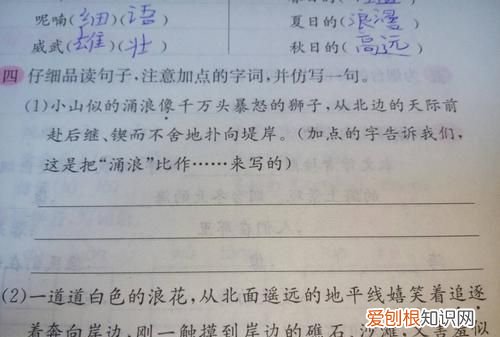 呢喃(细)(语)
夏日的(浪漫)
威武(雄)(壮)
秋日的(高远)
四 仔细品读句子,注意加点的字词,并仿写一句。
(1)小山似的涌浪像千万头暴怒的狮子,从北边的天际前
赴后继、锲而不舍地扑向堤岸。(加点的字告诉我们,
这是把“涌浪”比作……来写的)
(2)一道道白色的浪花,从北面遥远的地平线嬉笑着追逐
着奔向岸边,刚一触摸到岸边的礁石、沙滩,又害羞似
爱刨根知识网